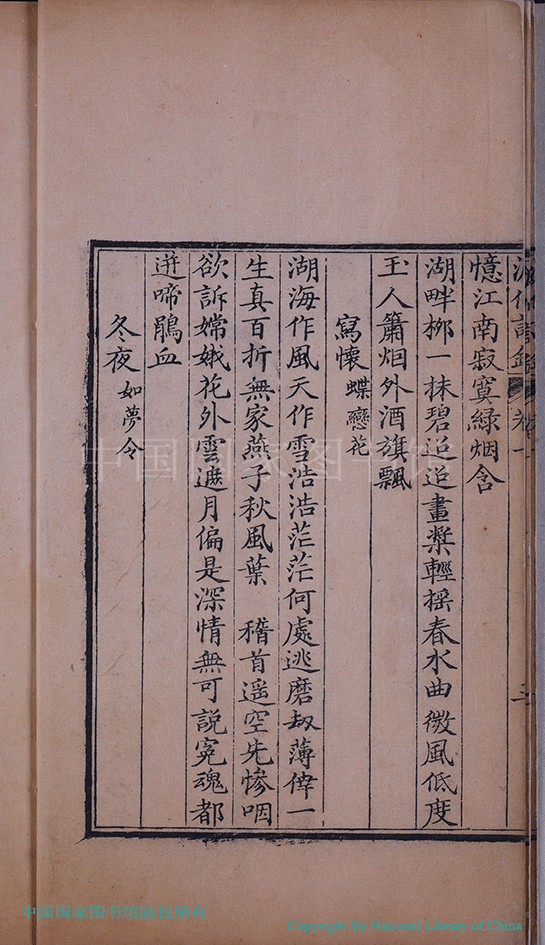 憶江南寂寞綠烟含
湖畔栁一抹碧迢迢畫槳輕揺春水曲微風低度
玉人簫烟外酒旗飄
寫懷 蝶戀花
湖海作風天作雪浩浩茫茫何處逃磨刼薄倖一
生真百折無家燕子秋風葉 稽首遥空先慘咽
欲訴嫦娥花外雲遮月偏是深情無可說寃魂都
迸啼鵑血
冬夜 如夢令
中国国家图书馆
中国国家图书馆版权所有
Copyright By National Library of China